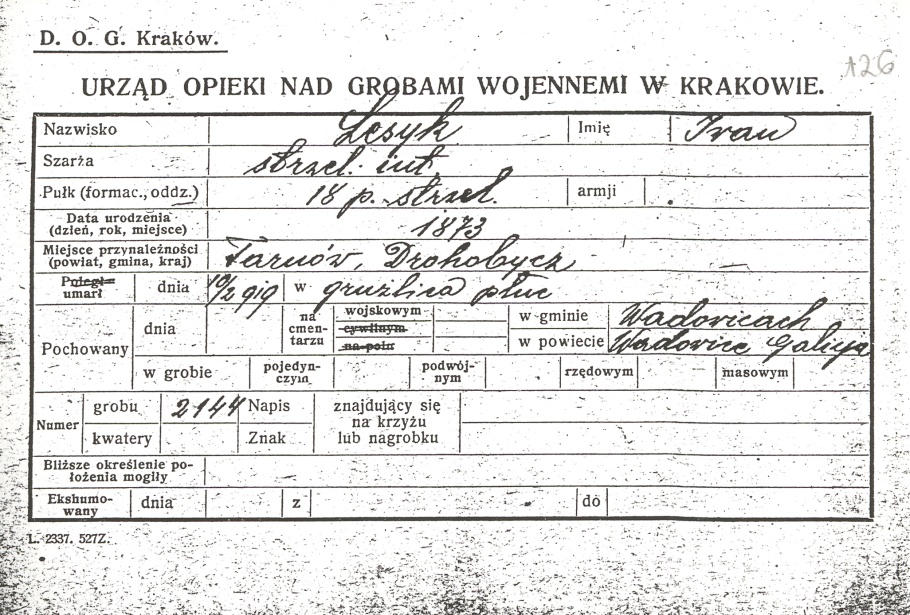 D. O. G. Kraków.
126
URZĄD OPIEKI NAD GROBAMI WOJENNEMI W KRAKOWIE.
Nazwisko Lesyk Imię Iwan
Szarża strzel. int.
Pułk (formac., oddz.) 18 p. strzel. armji
Data urodzenia (dzień, rok, miejsce) 1873
Miejsce przynależności (powiat, gmina, kraj) Tarnów, Drohobycz
Poległ umarł dnia 10/2 919 w gruzlica płuc
Pochowany dnia na cmentarzu wojskowym cywilnym na polu w gminie Wadovicach
w powiecie Wadovice Galicya
w grobie pojedynczym podwójnym rzędowym masowym
Numer grobu 2144 Napis znajdujący się na krzyżu lub nagrobku
kwatery Znak
Bliższe określenie położenia mogiły
Ekshumowany dnia z do
L. 2337. 527Z.